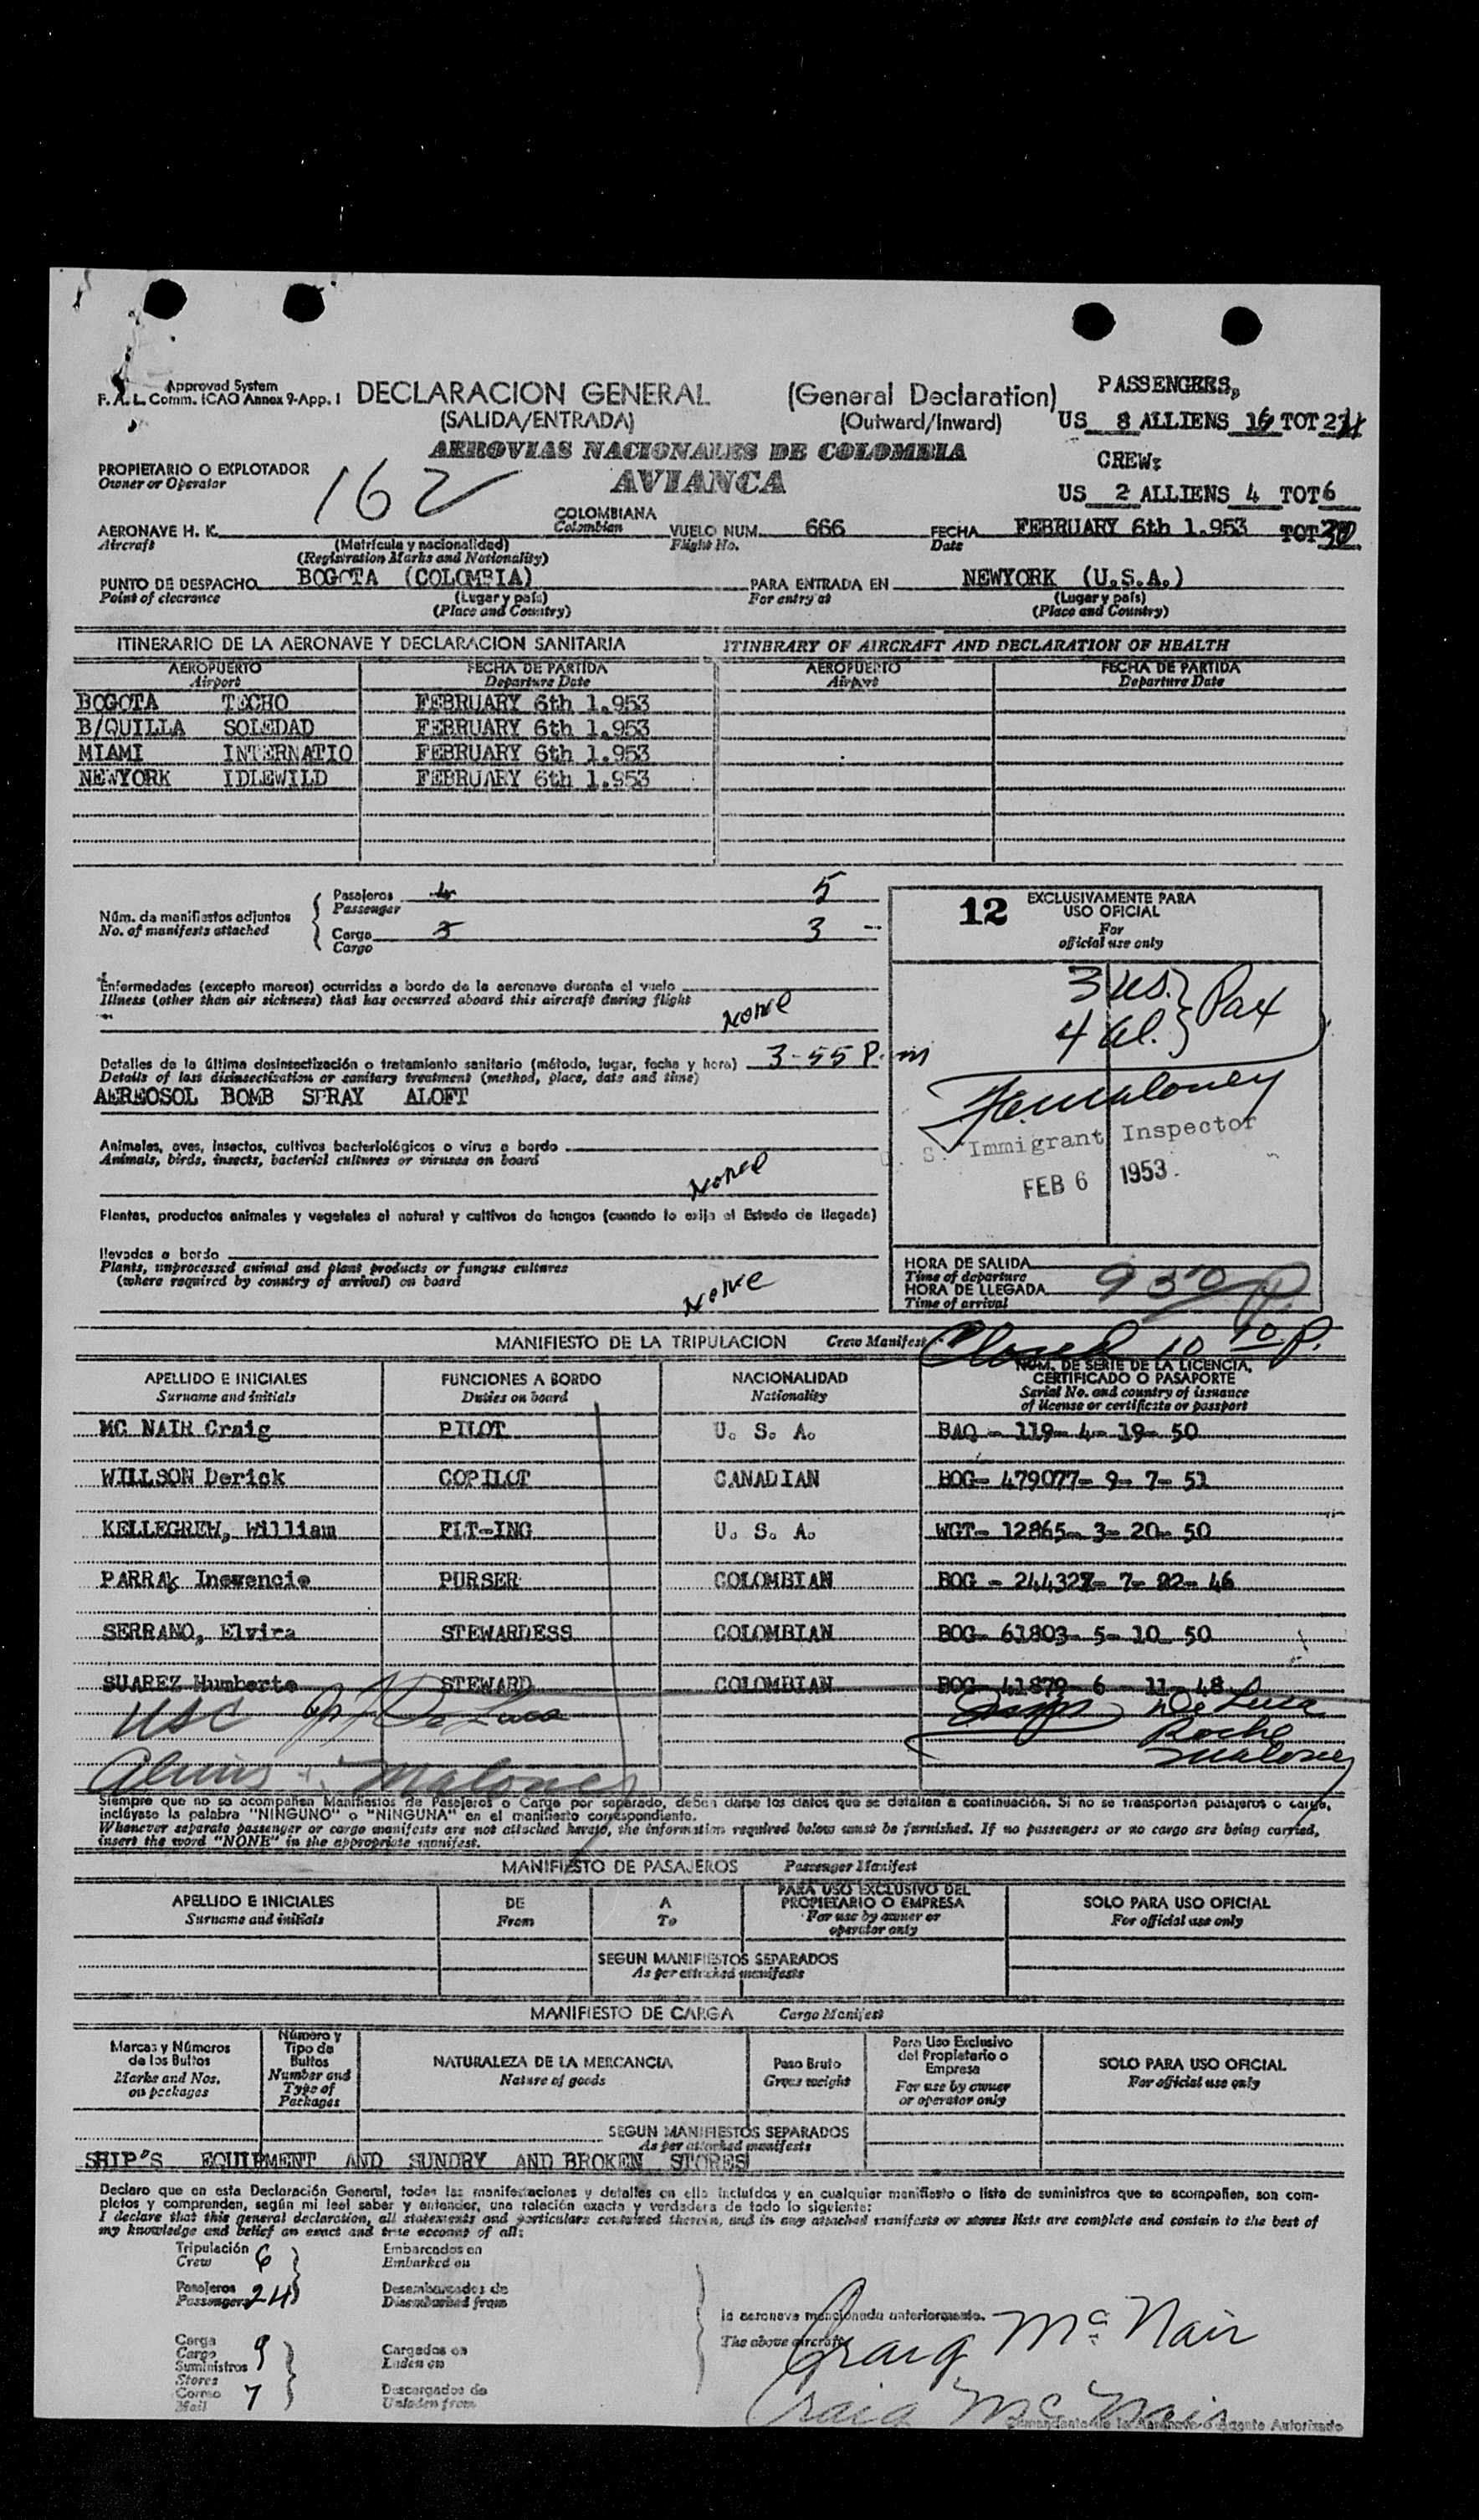 Approved System
F. A. L. Comm. ICAO Annex 9-App. 1
DECLARACION GENERAL (General Declaration)
(SALIDA/ENTRADA) (Outward/Inward)
PASSENGERS,
US 8 ALLIENS 16 TOT 24
AEROVIAS NACIONALES DE COLOMBIA
AVIANCA
CREW:
US 2 ALLIENS 4 TOT 6
PROPIETARIO O EXPLOTADOR
Owner or Operator
162
AERONAVE H. K. COLOMBIANA VUELO NUM. 666 FECHA FEBRUARY 6th 1.953 TOT 30
Aircraft (Matrícula y nacionalidad) Colombian Flight No. Date
(Registration Marks and Nationality)
PUNTO DE DESPACHO BOGOTA (COLOMBIA) PARA ENTRADA EN NEWYORK (U.S.A.)
Point of clearance (Lugar y país) For entry at (Lugar y país)
(Place and Country) (Place and Country)
ITINERARIO DE LA AERONAVE Y DECLARACION SANITARIA ITINERARY OF AIRCRAFT AND DECLARATION OF HEALTH
AEROPUERTO FECHA DE PARTIDA AEROPUERTO FECHA DE PARTIDA
Airport Departure Date Airport Departure Date
BOGOTA TECHO FEBRUARY 6th 1.953
B/QUILLA SOLEDAD FEBRUARY 6th 1.953
MIAMI INTERNATIO FEBRUARY 6th 1.953
NEWYORK IDLEWILD FEBRUARY 6th 1.953
Núm. de manifiestos adjuntos
No. of manifests attached
Pasajeros 4 5
Passenger
Cargo 3 3
Cargo
12 EXCLUSIVAMENTE PARA
USO OFICIAL
For
official use only
3 us. } Pax
4 al. }
Enfermedades (excepto mareos) ocurridas a bordo de la aeronave durante el vuelo
Illness (other than air sickness) that has occurred aboard this aircraft during flight
None
Detalles de la última desinsectización o tratamiento sanitario (método, lugar, fecha y hora) 3-55 P.m
Details of last disinsectization or sanitary treatment (method, place, date and time)
AEREOSOL BOMB SPRAY ALOFT
Maloney
U. S. Immigrant Inspector
FEB 6 1953
Animales, aves, insectos, cultivos bacteriológicos o virus a bordo
Animals, birds, insects, bacterial cultures or viruses on board
None
Plantas, productos animales y vegetales al natural y cultivos de hongos (cuando lo exija el Estado de llegada)
llevados a bordo
Plants, unprocessed animal and plant products or fungus cultures
(where required by country of arrival) on board
None
HORA DE SALIDA
Time of departure
HORA DE LLEGADA 9 50 P.
Time of arrival
MANIFIESTO DE LA TRIPULACION Crew Manifest
Closed 10 10 P.
APELLIDO E INICIALES FUNCIONES A BORDO NACIONALIDAD NUM. DE SERIE DE LA LICENCIA, CERTIFICADO O PASAPORTE
Surname and initials Duties on board Nationality Serial No. and country of issuance of license or certificate or passport
MC NAIR Craig PILOT U. S. A. BAQ - 119- 4- 19- 50
WILLSON Derick COPILOT CANADIAN BOG- 479077- 9- 7- 51
KELLEGREW, William FLT-ING U. S. A. WGT- 12865- 3- 20- 50
PARRA, PURSER COLOMBIAN BOG - 7- 22- 46
SERRANO, Elvira STEWARDESS COLOMBIAN BOG- 61803- 5- 10 50
SUAREZ Humberto STEWARD COLOMBIAN BOG- 41879 6 11- 48
USC De Luca
De Luca
Roche
Maloney
Aliens Maloney
Siempre que no se acompañen Manifiestos de Pasajeros o Carga por separado, deben darse los datos que se detallan a continuación. Si no se transportan pasajeros o carga,
inclúyase la palabra "NINGUNO" o "NINGUNA" en el manifiesto correspondiente.
Whenever separate passenger or cargo manifests are not attached hereto, the information required below must be furnished. If no passengers or no cargo are being carried,
insert the word "NONE" in the appropriate manifest.
MANIFIESTO DE PASAJEROS Passenger Manifest
APELLIDO E INICIALES DE A PARA USO EXCLUSIVO DEL PROPIETARIO O EMPRESA SOLO PARA USO OFICIAL
Surname and initials From To For use by owner or operator only For official use only
SEGUN MANIFIESTOS SEPARADOS
As per attached manifests
MANIFIESTO DE CARGA Cargo Manifest
Marcas y Números de los Bultos Número y Tipo de Bultos NATURALEZA DE LA MERCANCIA Peso Bruto Para Uso Exclusivo del Propietario o Empresa SOLO PARA USO OFICIAL
Marks and Nos. on packages Number and Type of Packages Nature of goods Gross weight For use by owner or operator only For official use only
SEGUN MANIFIESTOS SEPARADOS
As per attached manifests
SHIP'S EQUIPMENT AND SUNDRY AND BROKEN STORES
Declaro que en esta Declaración General, todas las manifestaciones y detalles en ella incluídos y en cualquier manifiesto o lista de suministros que se acompañen, son com-
pletos y comprenden, según mi leal saber y entender, una relación exacta y verdadera de todo lo siguiente:
I declare that this general declaration, all statements and particulars contained therein, and in any attached manifests or stores lists are complete and contain to the best of
my knowledge and belief an exact and true account of all:
Tripulación 6 Embarcados en
Crew Embarked on
Pasajeros 24 Desembarcados de
Passengers Disembarked from
la aeronave mencionada anteriormente.
The above aircraft
Craig McNair
Carga 9 Cargados en
Cargo Laden on
Suministros
Stores
Correo 7 Descargados de
Mail Unladen from
Craig McNair
Comandante de la Aeronave o Agente Autorizado